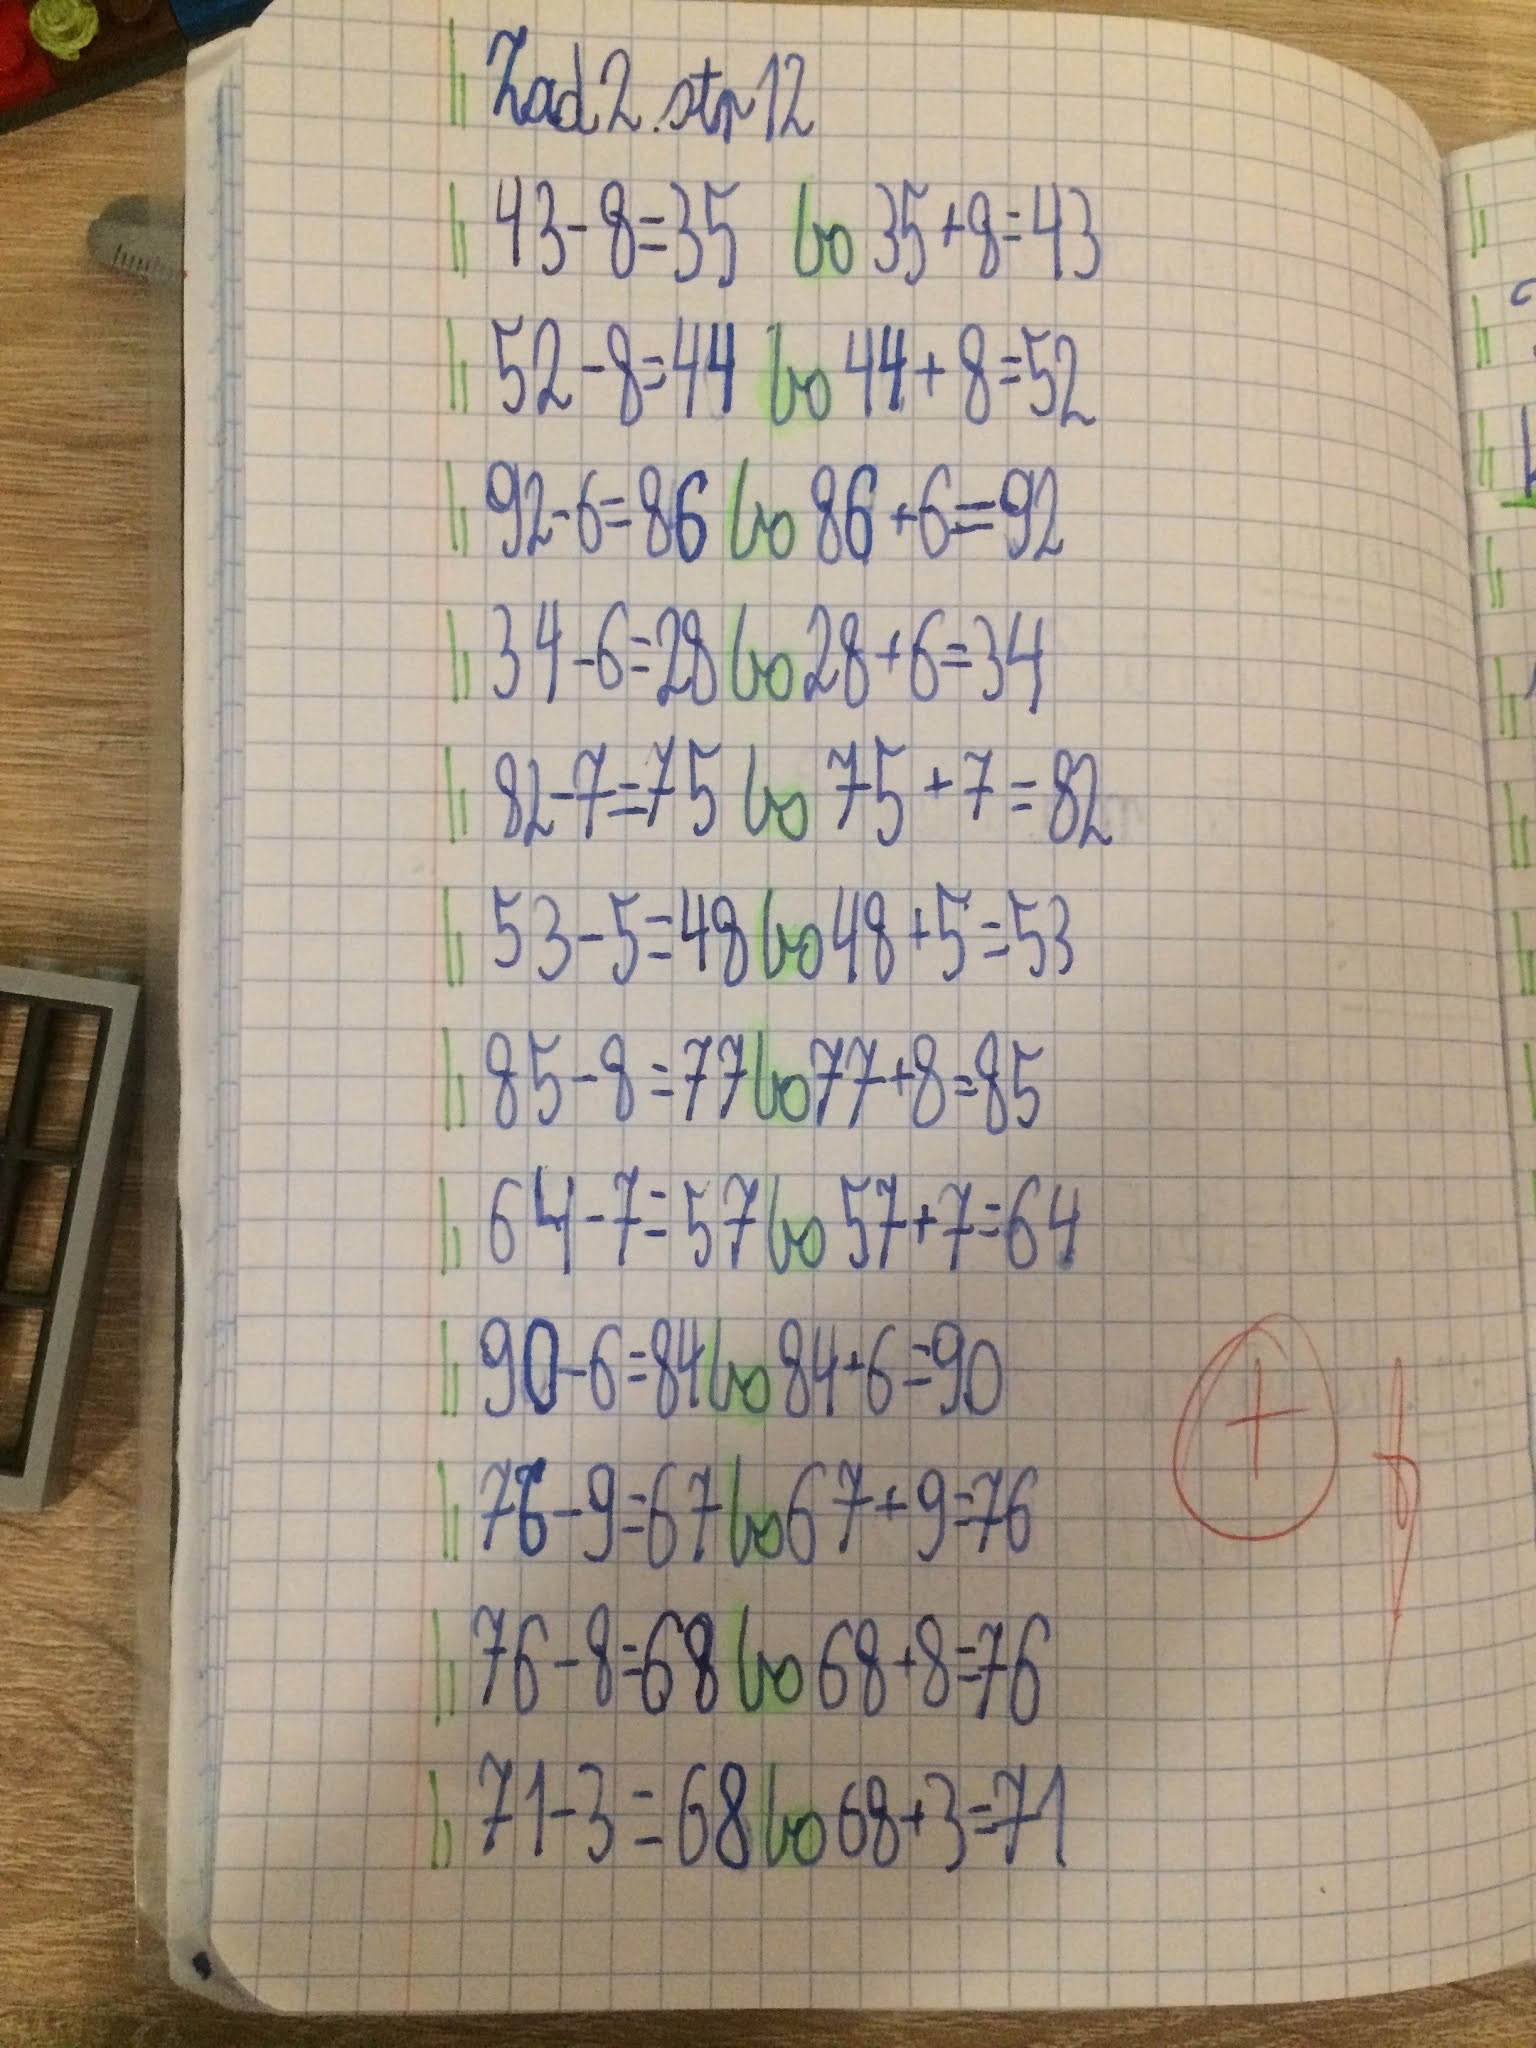 Zad 2. str 12
43-8=35 bo 35+8=43
52-8=44 bo 44+8=52
92-6=86 bo 86+6=92
34-6=28 bo 28+6=34
82-7=75 bo 75+7=82
53-5=48 bo 48+5=53
85-8=77 bo 77+8=85
64-7=57 bo 57+7=64
90-6=84 bo 84+6=90
+
76-9=67 bo 67+9=76
76-8=68 bo 68+8=76
71-3=68 bo 68+3=71